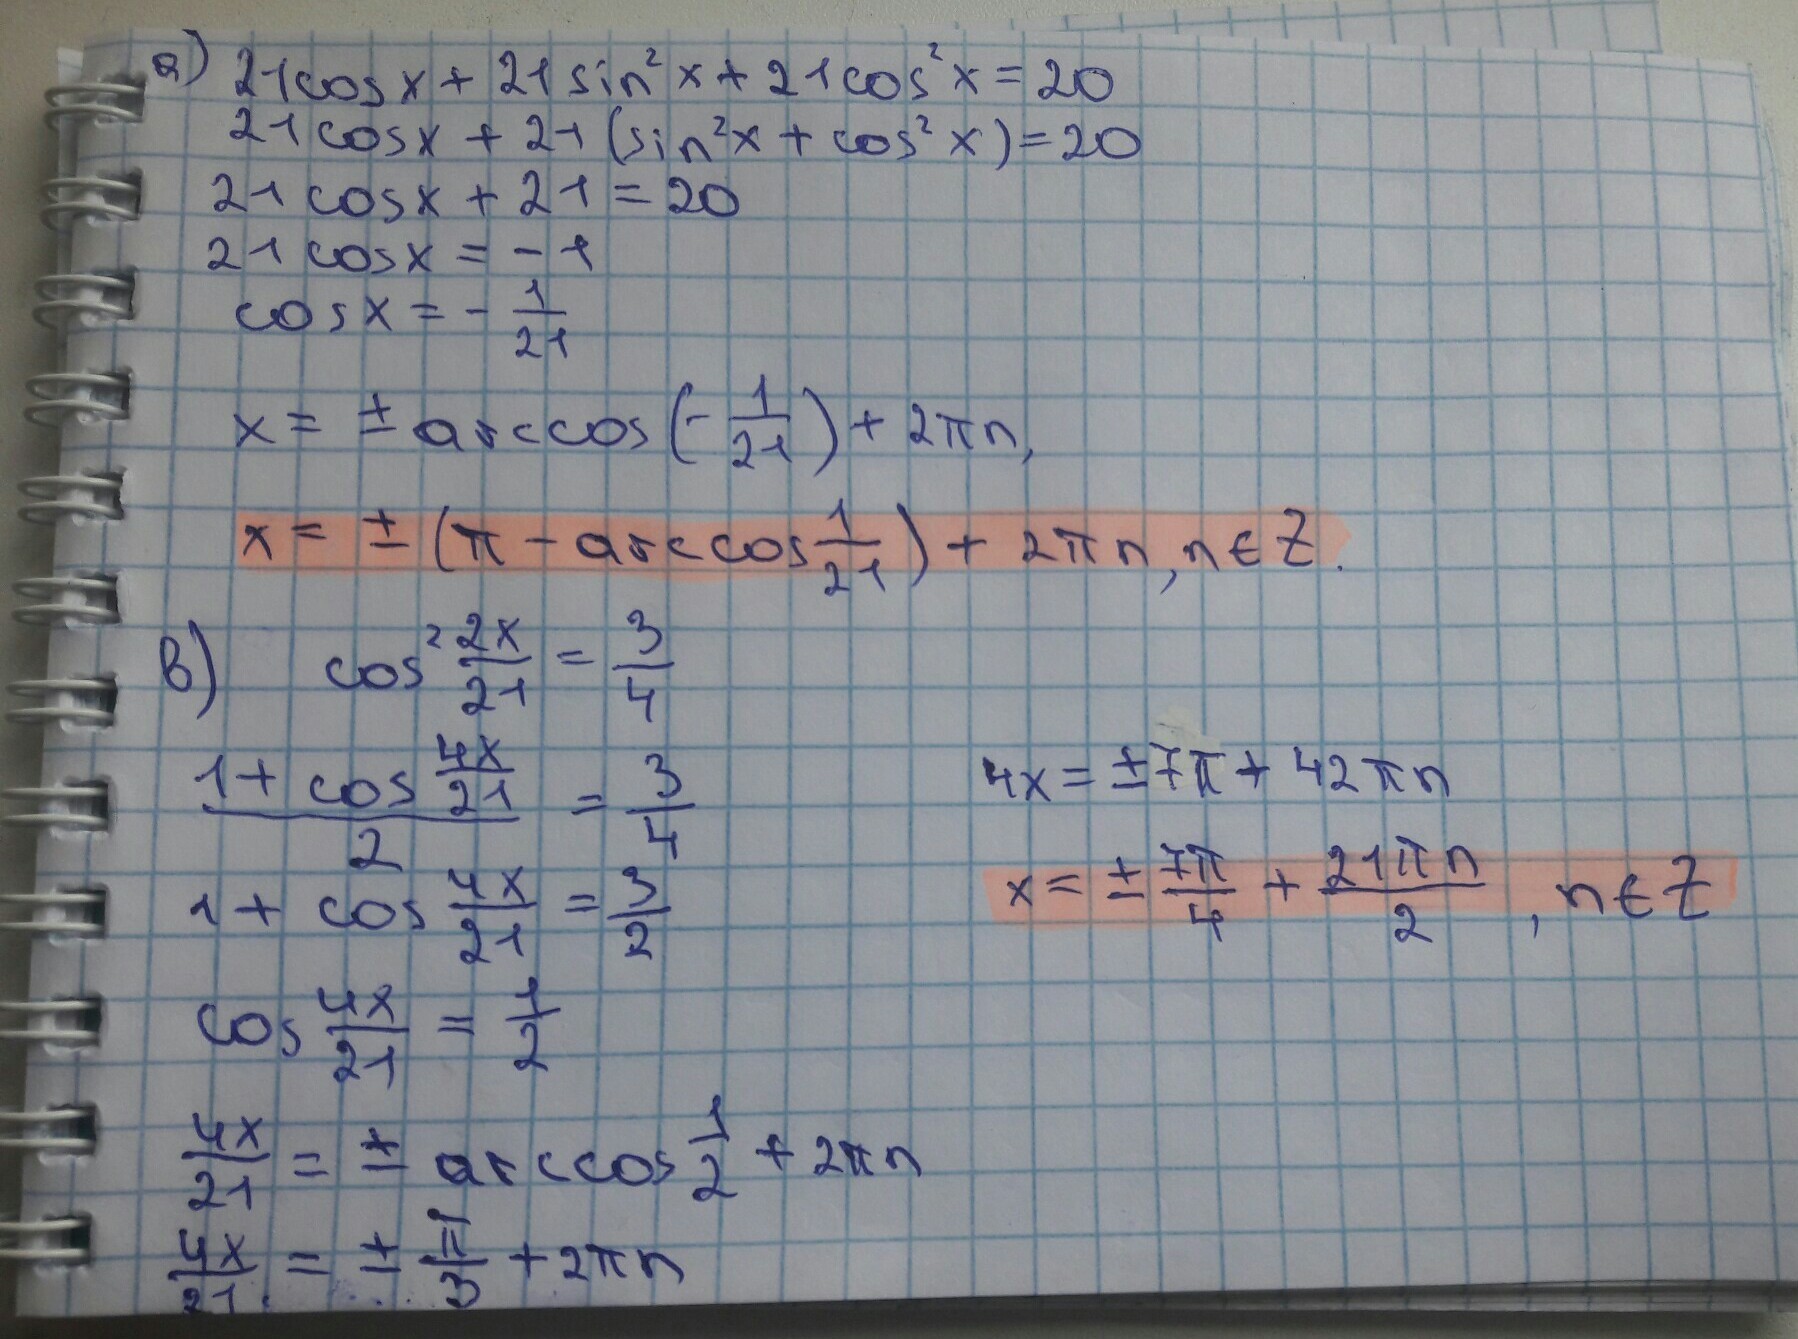 а) 21cosx + 21sin²x + 21cos²x = 20
21cosx + 21(sin²x + cos²x) = 20
21cosx + 21 = 20
21cosx = -1
cosx = -1/21
x = ± arccos(-1/21) + 2πn,
x = ±(π - arccos 1/21) + 2πn, n∈Z.
в) cos² 2x/21 = 3/4
(1 + cos 4x/21)/2 = 3/4
1 + cos 4x/21 = 3/2
cos 4x/21 = 1/2
4x/21 = ± arccos 1/2 + 2πn
4x/21 = ± π/3 + 2πn
4x = ±7π + 42πn
x = ± 7π/4 + 21πn/2, n∈Z